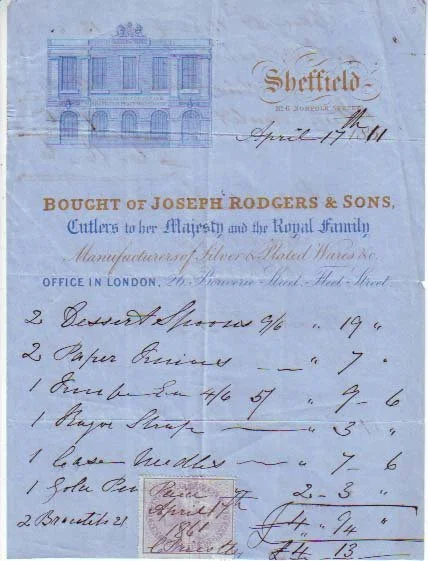 Sheffield
No 6 NORFOLK STREET
April 17th
BOUGHT OF JOSEPH RODGERS & SONS,
Cutlers to her Majesty and the Royal Family
Manufacturers of Silver & Plated Wares &c.
OFFICE IN LONDON, 26, Bouverie Street, Fleet Street
2 Dessert Spoons 9/6 " 19 "
2 Paper Knives — " 7 "
1 4/6 5/ " 9 - 6
1 Razor Strop — " 3 "
1 Case Needles — " 7 - 6
1 Gold Pen 2 - 3 "
2
£4 " 9/4 "
£4 13 —
Paid
April 17
1861